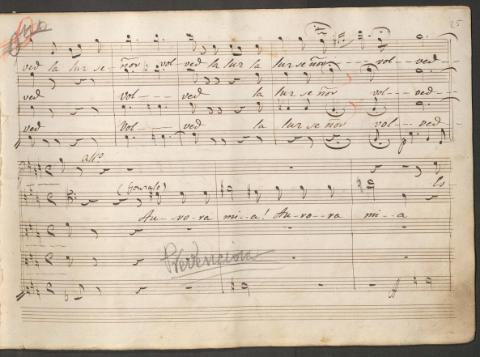 25
ved la luz señor vol ved la luz la luz señor vol -- ved --
ved vol --- ved la luz señor vol -- ved --
ved vol --- ved la luz señor vol -- ved --
all.º
(Gonzalo) Es
Au -- ro -- ra mi -- a! Au -- ro -- ra mi -- a
Prevencion